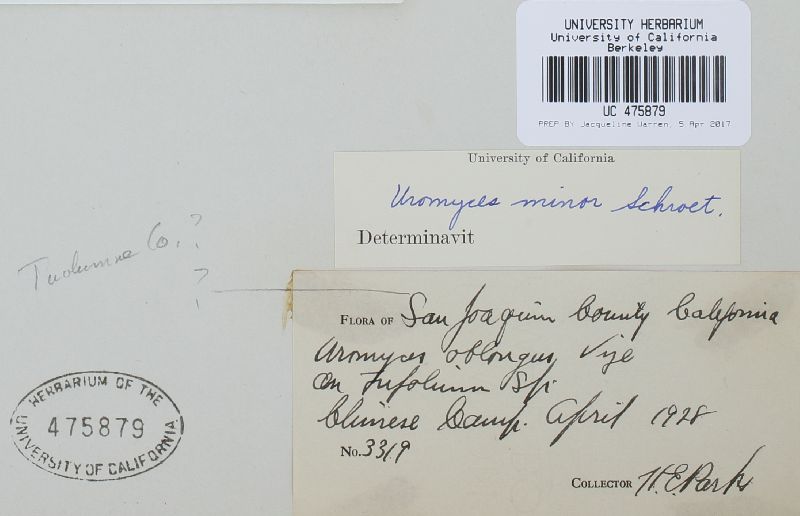 UNIVERSITY HERBARIUM
University of California
Berkeley
UC 475879
PREP BY Jacqueline Warren, 5 Apr 2017
University of California
Uromyces minor Schroet.
Determinavit
Tuolumne Co. ?
?
FLORA OF San Joaquim County California
Uromyces oblongus, Vize
On Trifolium Sp.
Chinese Camp. April 1928
No. 3319
COLLECTOR H.E. Parks
HERBARIUM OF THE
475879
UNIVERSITY OF CALIFORNIA